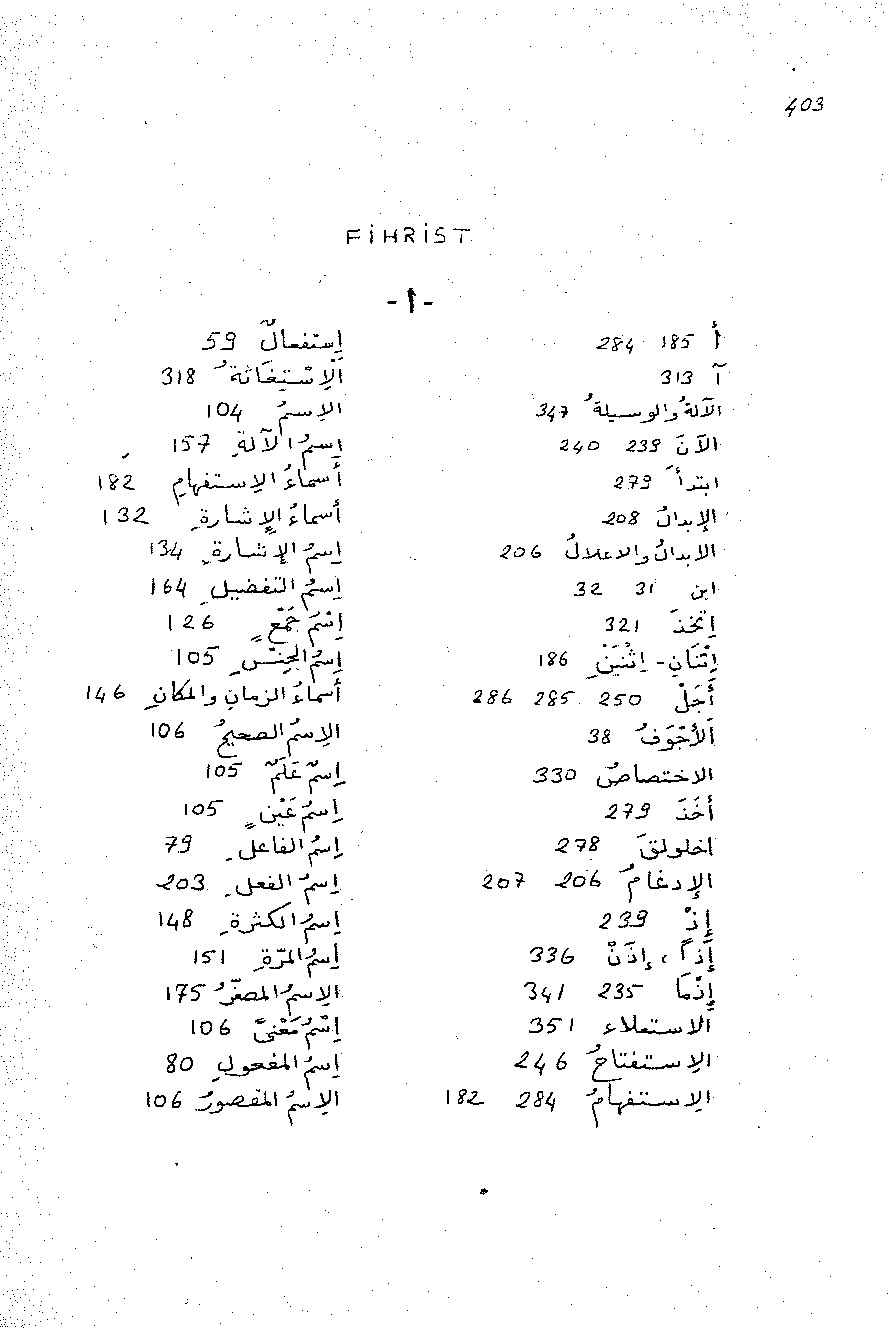 403
FİHRİST
-أ-
أ 185 284
آ 313
الآلةُ والوسيلةُ 347
الآنَ 239 240
ابتدأَ 279
الإبدالُ 208
الابدالُ والاعلالُ 206
ابن 31 32
اِتَّخَذَ 321
اِثْنَانِ - اِثْنَيْنِ 186
أَجَلْ 250 285 286
اَلْأَجْوَفُ 38
الاختصاصُ 330
أَخَذَ 279
اخلولقَ 278
الإدغامُ 206 207
إِذْ 239
إِذاً ، إِذَنْ 336
إِذْمَا 235 341
الاستعلاء 351
الإستفتاحُ 246
الإستفهامُ 284 182
اِستفعالٌ 59
اَلْاِسْتِغَاثَةُ 318
الاِسمُ 104
اِسمُ الآلةِ 157
أسماءُ الإستفهامِ 182
أسماءُ الإشارةِ 132
اِسمُ الإشارةِ 134
اِسمُ التفضيلِ 164
اِسْمُ جَمْعٍ 126
اِسمُ الجِنْسِ 105
أسماءُ الزمانِ والمكانِ 146
الإسمُ الصحيحُ 106
اِسمٌ عَلَمٌ 105
اِسمُ عَيْنٍ 105
اِسمُ الفاعلِ 79
اِسمُ الفعلِ 203
اِسمُ الكثرةِ 148
اِسمُ المرَّةِ 151
الإسمُ المصغَّرُ 175
اِسْمُ مَعْنىً 106
اِسمُ المفعولِ 80
الإسمُ المقصورُ 106